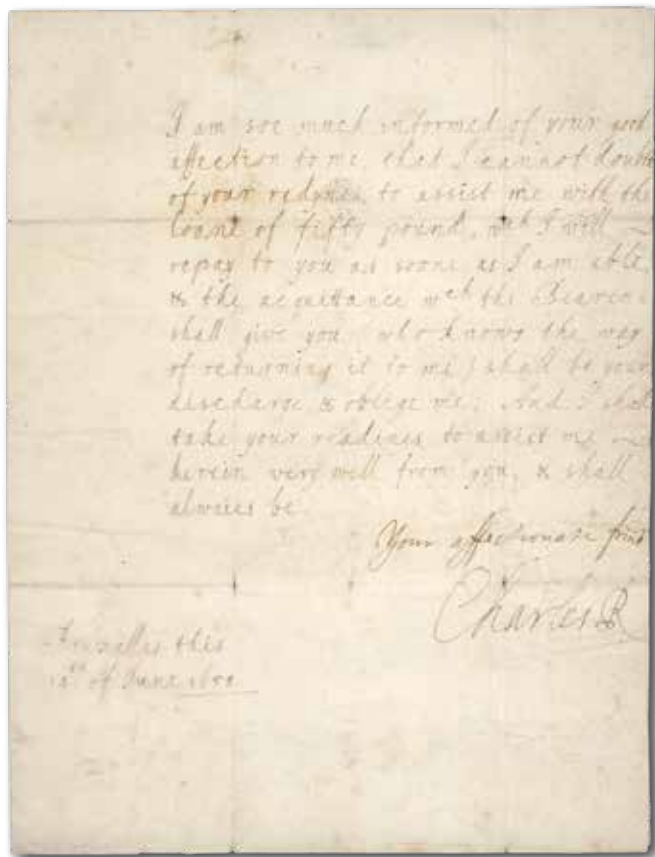 I am soe much informed of your good
affection to me, that I cannot doubt
of your redynes to assist me with the
loane of fifty pound, wch I will
repay to you as soone as I am able,
& the acquittance wch the Bearer
shall give you who knowes the way
of returning it to me) shall be your
discharge & oblige me; And I shall
take your readines to assist me
herein very well from you, & shall
alwaies be
Your affectionate frind
Charles R
Bruxelles this
of June